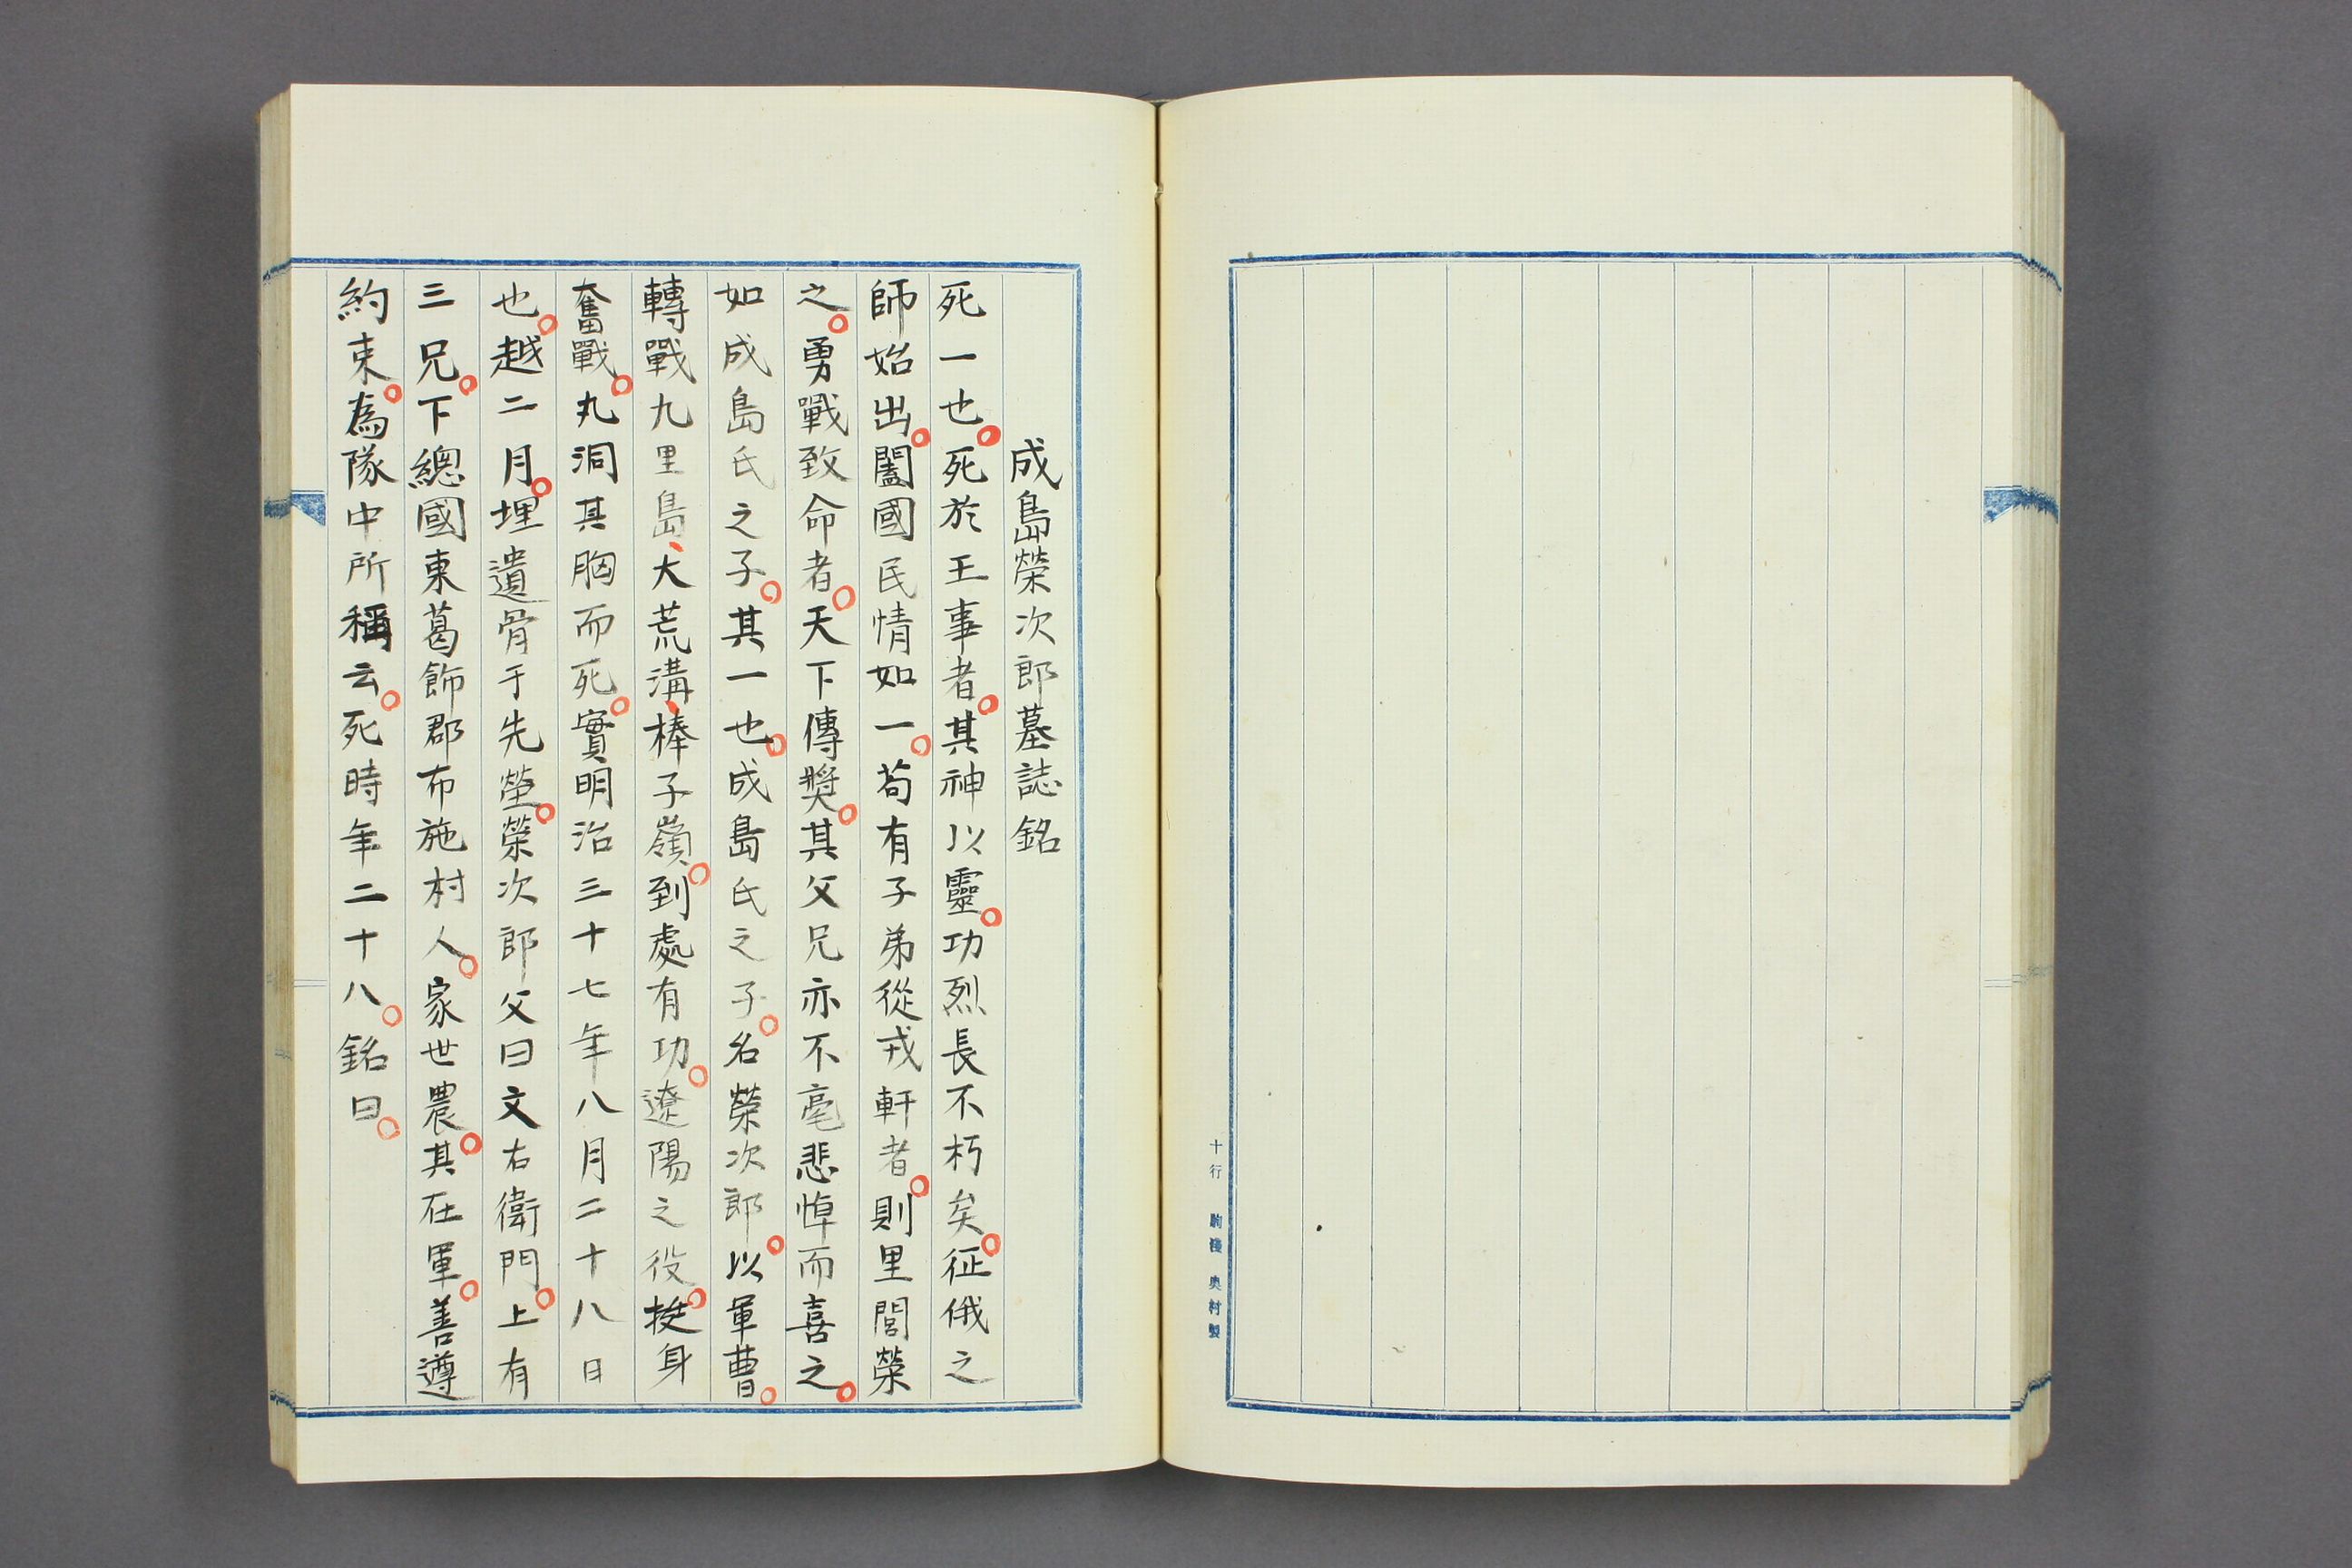 十行 駒後 奥村製
成島榮次郎墓誌銘
死一也。死於王事者。其神以靈。功烈長不朽矣。征俄之
師始出。闔國民情如一。苟有子弟從戎軒者。則里閭榮
之。勇戰致命者。天下傳奬。其父兄亦不毫悲悼而喜之。
如成島氏之子。其一也。成島氏之子。名榮次郎。以軍曹。
轉戰九里島、大荒溝、棒子嶺。到處有功。遼陽之役。挺身
奮戰。丸洞其胸而死。實明治三十七年八月二十八日
也。越二月。埋遺骨于先塋。榮次郎父曰文右衛門。上有
三兄。下總國東葛飾郡布施村人。家世農。其在軍。善遵
約束。為隊中所稱云。死時年二十八。銘曰。